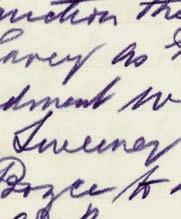 unction the
Carey as
dment w
Sweeney
Boyce to